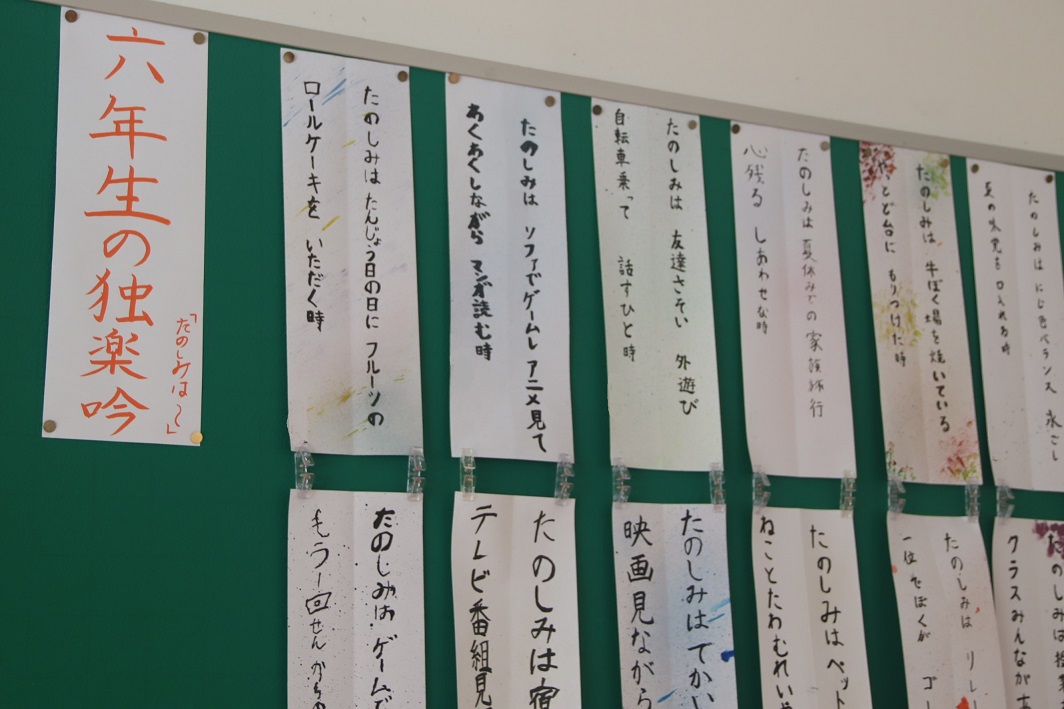 六年生の独楽吟
「たのしみは〜」
たのしみは たんじょう日の日に フルーツの
ロールケーキを いただく時
たのしみは ソファでゲームし アニメ見て
わくわくしながら マンガ読む時
たのしみは 友達さそい 外遊び
自転車乗って 話すひと時
たのしみは 夏休みでの 家族旅行
心残る しあわせな時
たのしみは 牛ぼく場を 焼いている
やっとど台に もりつけた時
たのしみは にじ色ベランス 氷こし
夏の味覚を 口入れる時
たのしみは ゲームで
もう一回せん からの
たのしみは宿
テレビ番組見
たのしみは でかい
映画見ながら
たのしみはペット
ねことたわむれい
たのしみは リレー
一位 でぼくが ゴー
たのしみは授業
クラスみんなが